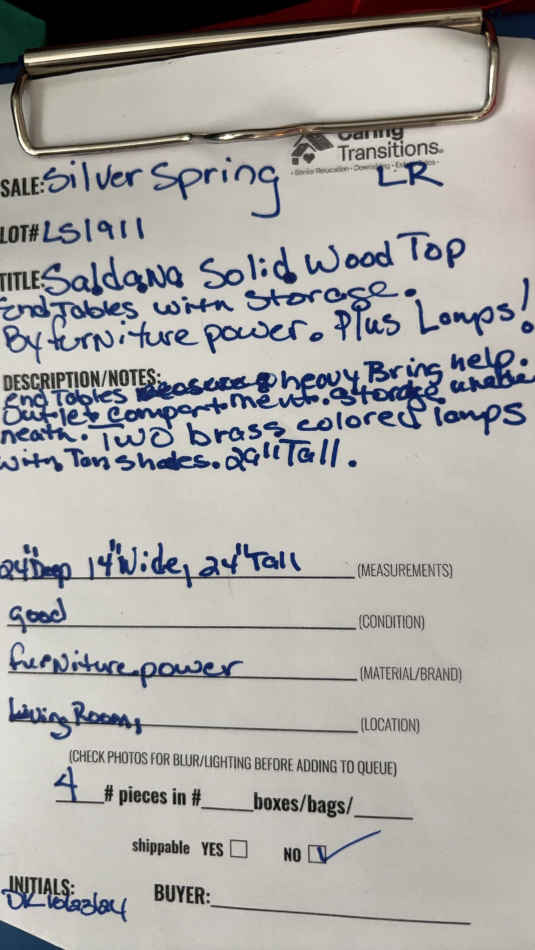 Caring
Transitions.
SALE: Silver Spring LR
LOT# LS1911
TITLE: Saldana Solid Wood Top
End Tables with Storage.
By furniture power. Plus Lamps!
DESCRIPTION/NOTES:
end Tables heavy Bring help.
Outlet compartment. Storage undere
neath. Two brass colored lamps
with Tan Shades. 29" Tall.
24" Deep 14" Wide, 24" Tall (MEASUREMENTS)
good (CONDITION)
furniture power (MATERIAL/BRAND)
Living Room, (LOCATION)
(CHECK PHOTOS FOR BLUR/LIGHTING BEFORE ADDING TO QUEUE)
4 # pieces in #_____ boxes/bags/_____
shippable YES ☐ NO ☑
INITIALS: BUYER:
DK 10/23/24